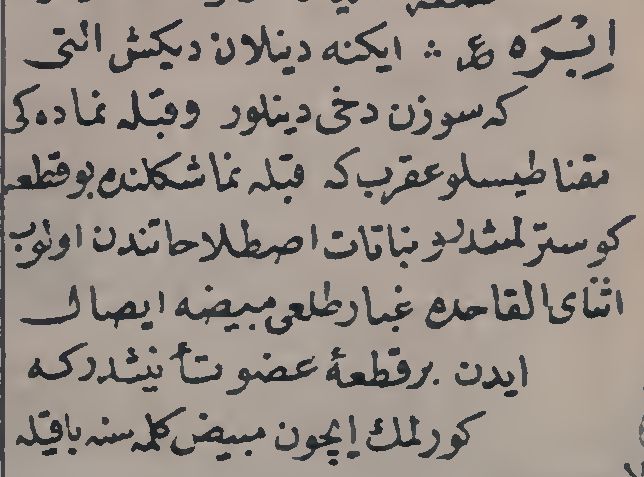 اِبْرَه ع ∴ ايكنه دينلان ديكش التى
كه سوزن دخى دينلور وقبله نما ده كى
مقناطيسلو عقرب كه قبله نما شكلنده بو قطعه
كوسترلمشدر و نباتات اصطلاحاتندن اولوب
اثناى القاحده غبار طلعى مبيضه ايصال
ايدن بر قطعۀ عضو تأنيثدركه
كورلمك ايچون مبيض كلمه سنه باقيله